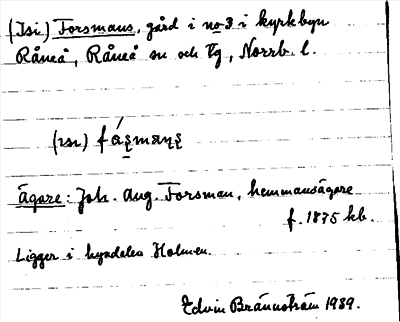 (Isi.) Forsmans, gård i no 3 i kyrkbyn
Råneå, Råneå sn och tg, Norrb. l.
Ägare: Joh. Aug. Forsman, hemmansägare
f. 1875 kb.
Ligger i bydelen Holmen.
Edvin Brännström 1939.